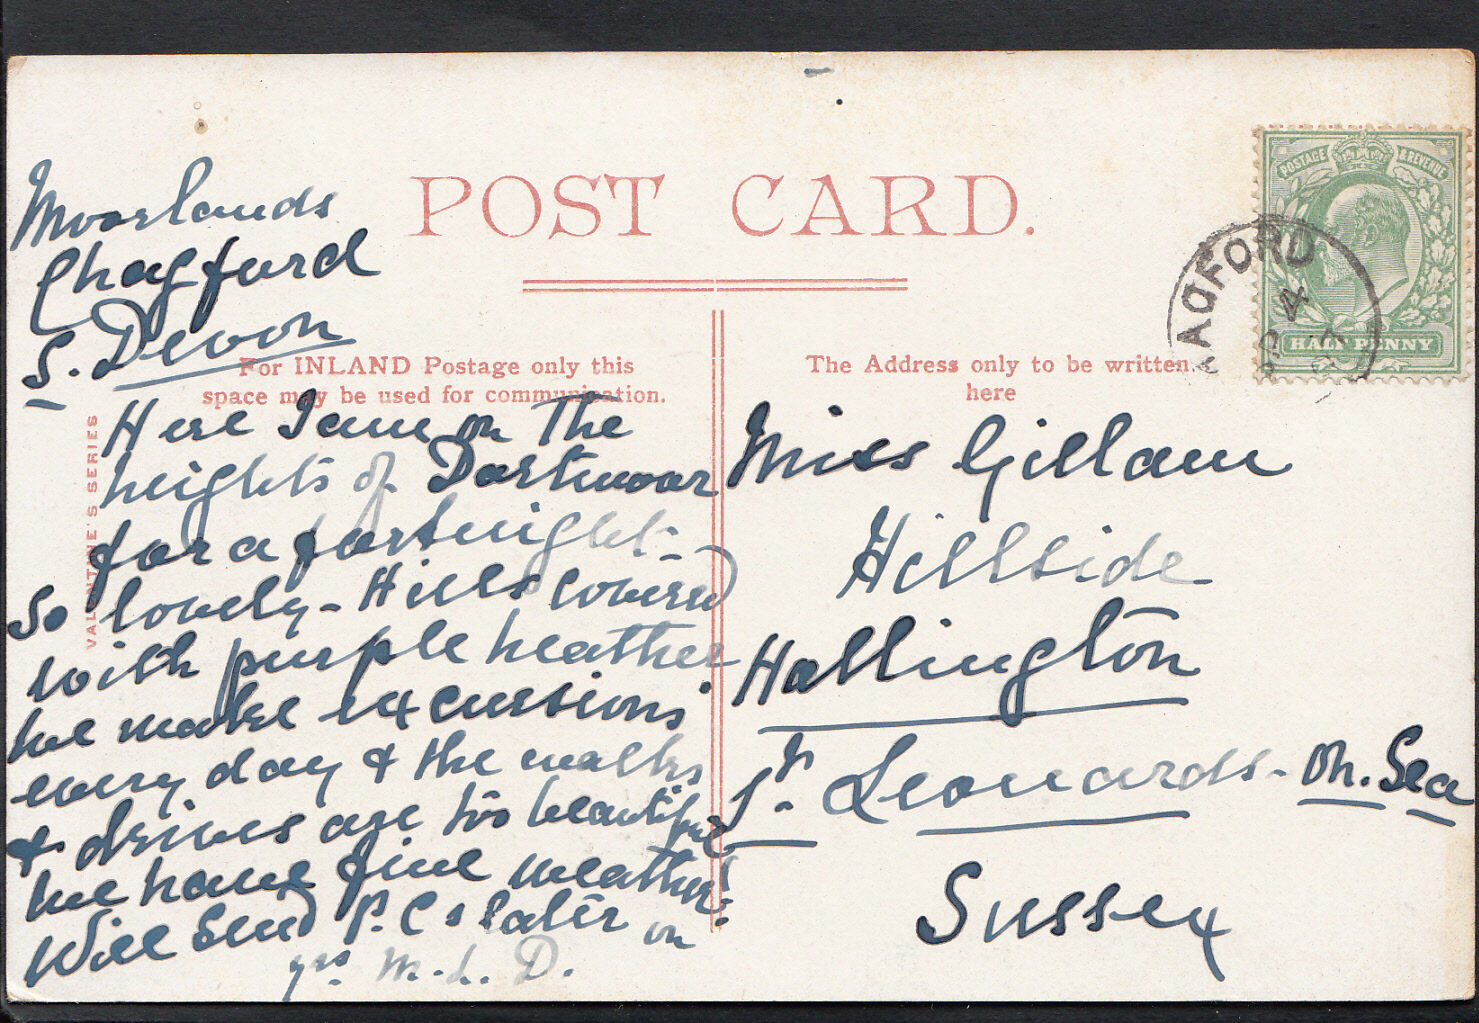 POST CARD.
POSTAGE & REVENUE
HALF PENNY
AGFORD
4
VALENTINE'S SERIES
For INLAND Postage only this
space may be used for communication.
The Address only to be written
here
Moorlands
Chagford
S. Devon
Here I am on the
heights of Dartmoor
for a fortnight -
So lovely - Hills covered
with purple heather
we make excursions
every day & the walks
& drives are too beautiful
we have fine weather!
Will send P.Cs later on
yrs M. L. D.
Miss Gillam
Hillside
Hollington
St. Leonards - on. Sea
Sussex